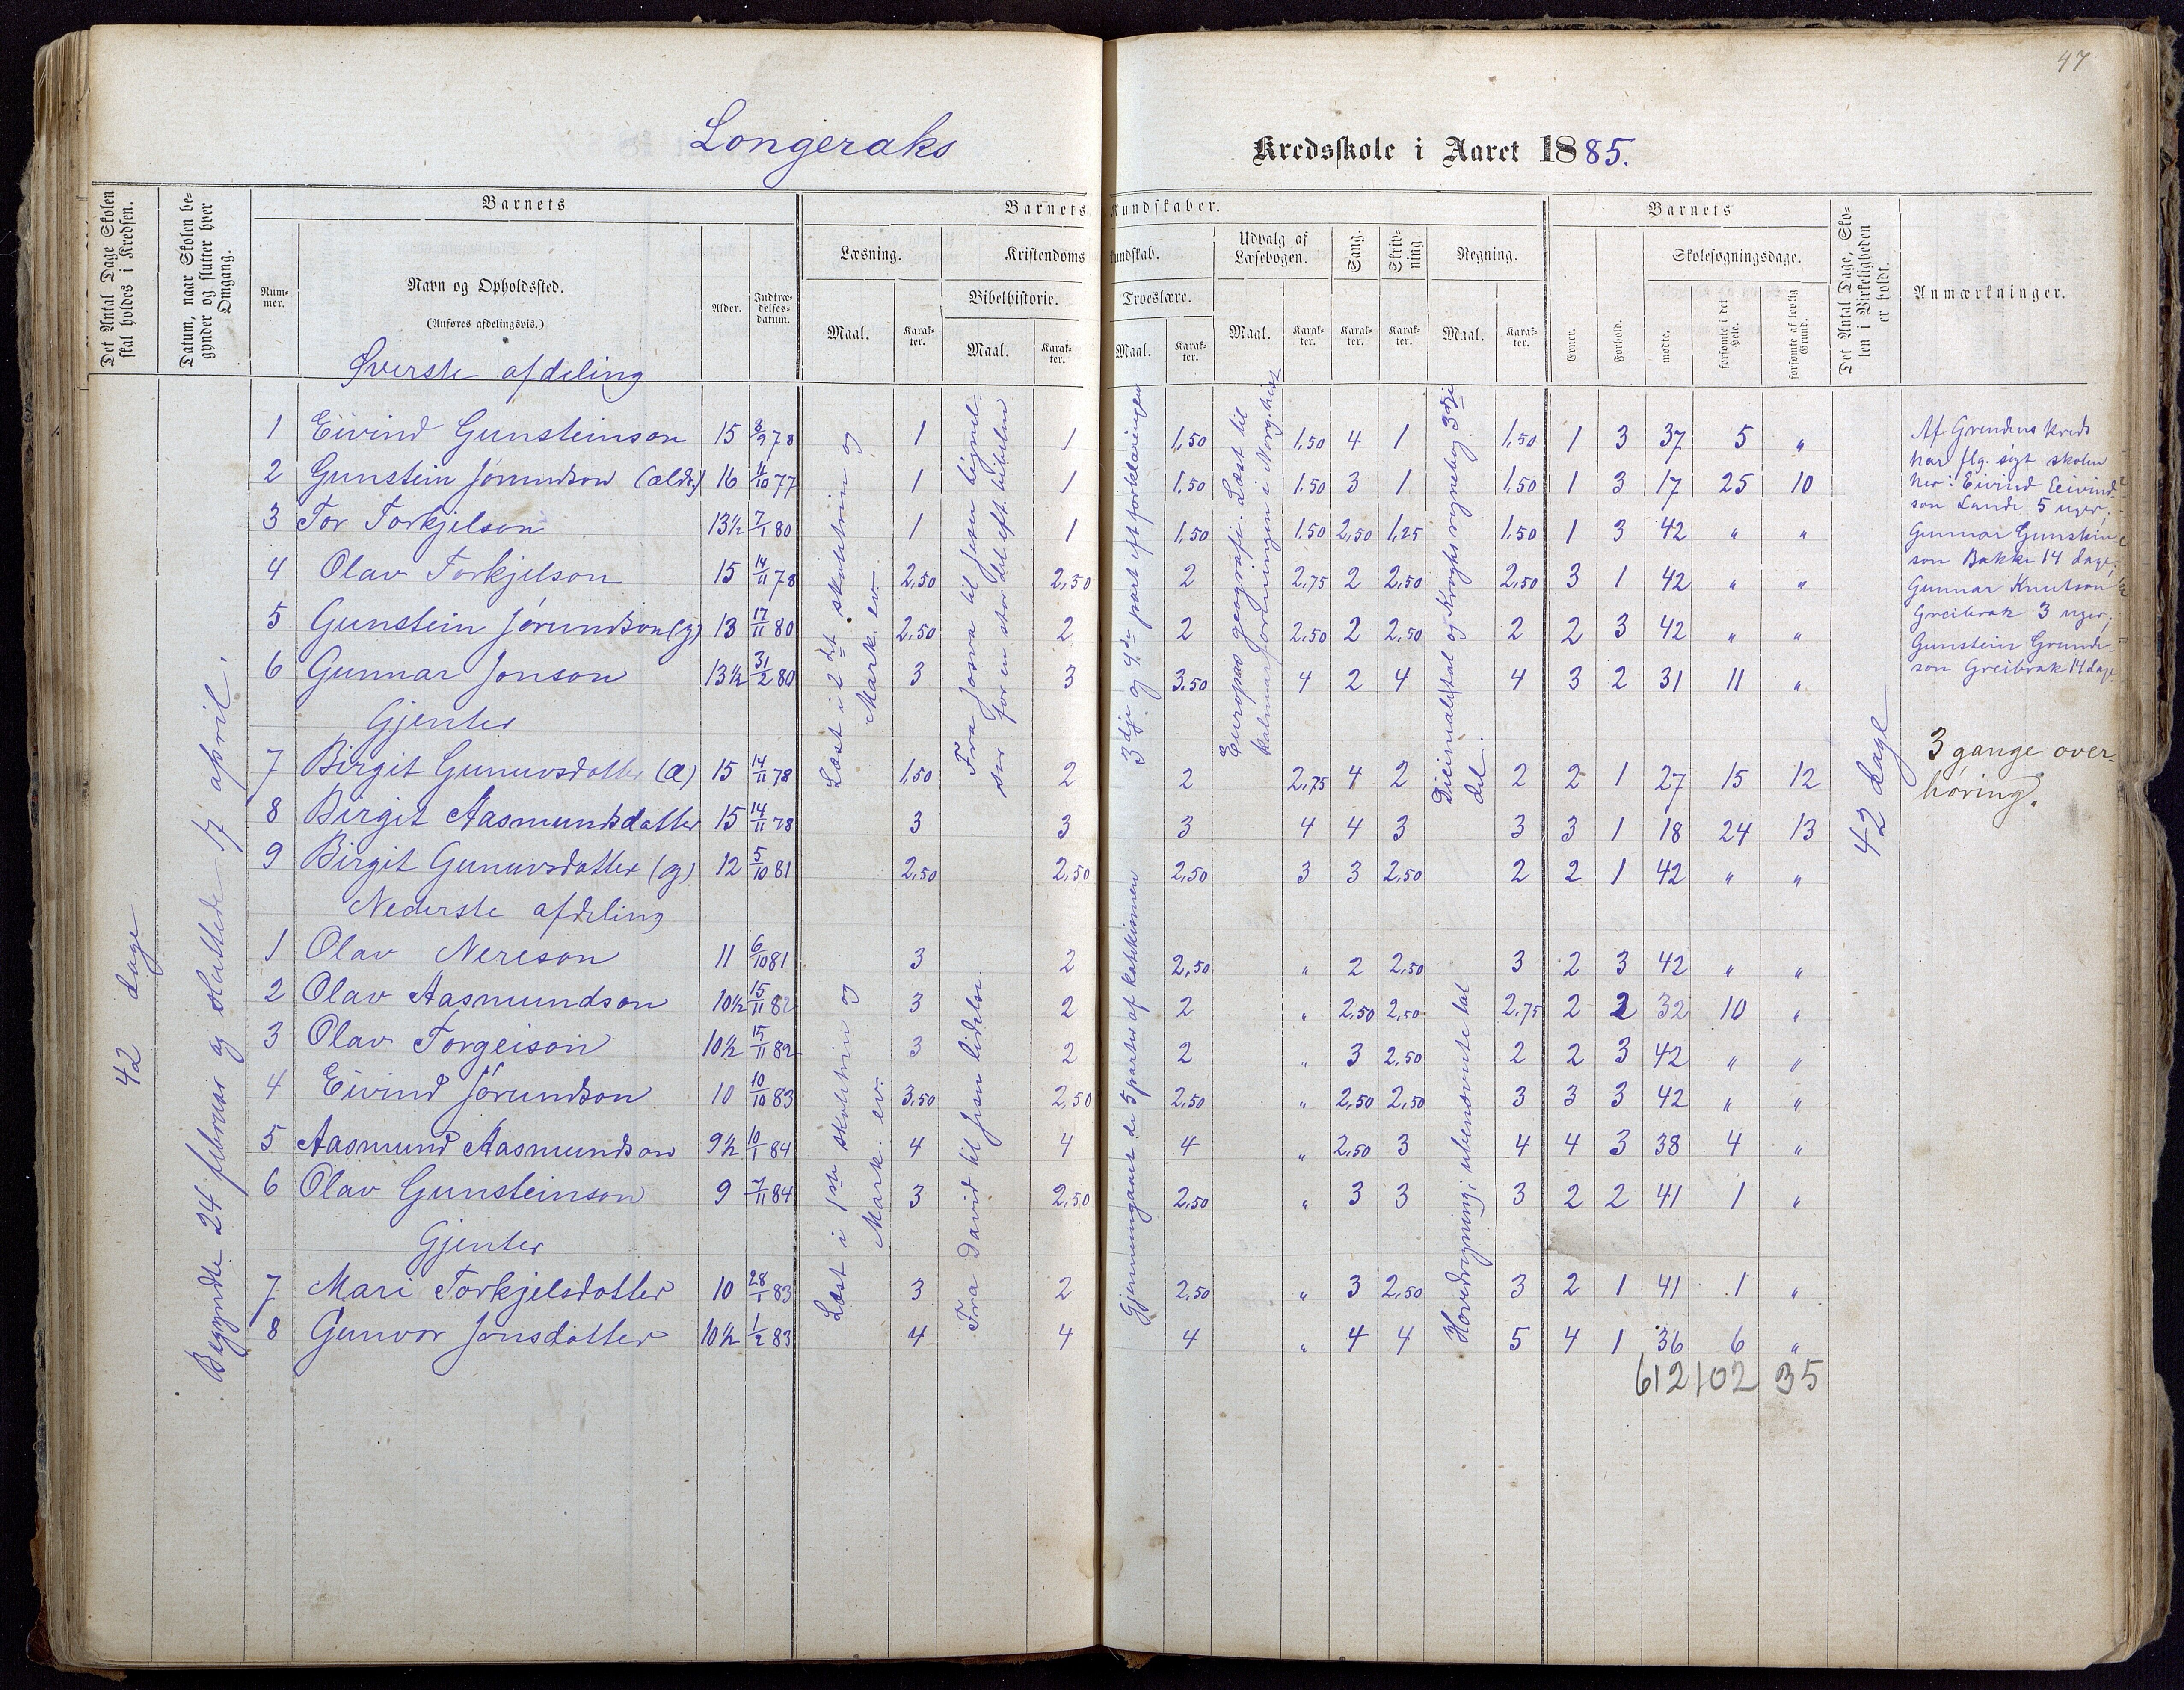 47
Longeraks Kredsskole i Aaret 1885.
Det Antal Dage Skolen skal holdes i Kredsen.
Datum, naar Skolen begynder og slutter hver Omgang.
Barnets
Nummer.
Navn og Opholdssted.
(Anføres afdelingsvis.)
Alder.
Indtrædelsesdatum.
Barnets Kundskaber.
Læsning.
Maal.
Karakter.
Kristendomskundskab.
Bibelhistorie.
Maal.
Karakter.
Troeslære.
Maal.
Karakter.
Udvalg af Læsebogen.
Maal.
Karakter.
Sang.
Karakter.
Skrivning.
Karakter.
Regning.
Maal.
Karakter.
Barnets
Evner.
Forhold.
Skolesøgningsdage.
mødte.
forsømte i det Hele.
forsømte af lovlig Grund.
Det Antal Dage, Skolen i Virkeligheden er holdt.
Anmærkninger.
42 dage
Begyndte 24 februar og sluttede 17 april.
Øverste afdeling
Læst i 2det skoletrin og Mark. ev.
Fra Josva til Jesu lignelser for en stor del eft. bibelen
3dje og 4de part eft forklaringen
Europas geografi. Læst til Kalmarforeningen i Norg. hist.
Decimaltal og Kroghs regnebog 3dje del.
1 Eivind Gunsteinson 15 8/9 78 1 1 1,50 1,50 4 1 1,50 1 3 37 5 "
2 Gunstein Jørundson (ældr.) 16 4/10 77 1 1 1,50 1,50 3 1 1,50 1 3 17 25 10
3 Tor Torkjelson 13½ 7/1 80 1 1 1,50 1,50 2,50 1,25 1,50 1 3 42 " "
4 Olav Torkjelson 15 14/11 78 2,50 2,50 2 2,75 2 2,50 2,50 3 1 42 " "
5 Gunstein Jørundson (y) 13 17/11 80 2,50 2 2 2,50 2 2,50 2 2 3 42 " "
6 Gunnar Jonson 13½ 31/2 80 3 3 3,50 4 2 4 4 3 2 31 11 "
Gjenter
7 Birgit Gunuvsdatter (æ) 15 14/11 78 1,50 2 2 2,75 4 2 2 2 1 27 15 12
8 Birgit Aasmundsdatter 15 14/11 78 3 3 3 4 4 3 3 3 1 18 24 13
9 Birgit Gunuvsdatter (y) 12 5/10 81 2,50 2,50 2,50 3 3 2,50 2 2 1 42 " "
Nederste afdeling
Læst i 1ste skoletrin og Mark. ev.
Fra David til Jesu lidelse
Gjennemgaaet de 5 parter af katekismen
Hovedregning i ubenævnte tal
1 Olav Nereson 11 6/10 81 3 2 2,50 " 2 2,50 3 2 3 42 " "
2 Olav Aasmundson 10½ 15/11 82 3 2 2 " 2,50 2,50 2,75 2 2 32 10 "
3 Olav Torgeison 10½ 15/11 82 3 2 2 " 3 2,50 2 2 3 42 " "
4 Eivind Jørundson 10 10/10 83 3,50 2,50 2,50 " 2,50 2,50 3 3 3 42 " "
5 Aasmund Aasmundson 9½ 10/1 84 4 4 4 " 2,50 3 4 4 3 38 4 "
6 Olav Gunsteinson 9 7/11 84 3 2,50 2,50 " 3 3 3 2 2 41 1 "
Gjenter
7 Mari Torkjelsdotter 10 28/1 83 3 2 2,50 " 3 2,50 3 2 1 41 1 "
8 Gunvor Jonsdotter 10½ 1/2 83 4 4 4 " 4 4 5 4 1 36 6 "
612 102 35
42 dage
Af Grendens kreds
har flg. søgt skolen
her: Eivind Eivind-
son Lande 5 uger,
Gunnar Gunstein-
son Bakke 14 dage,
Gunnar Knutson
Greibrok 3 uger,
Gunstein
son Greibrok 14 dage
3 gange over-
høring.